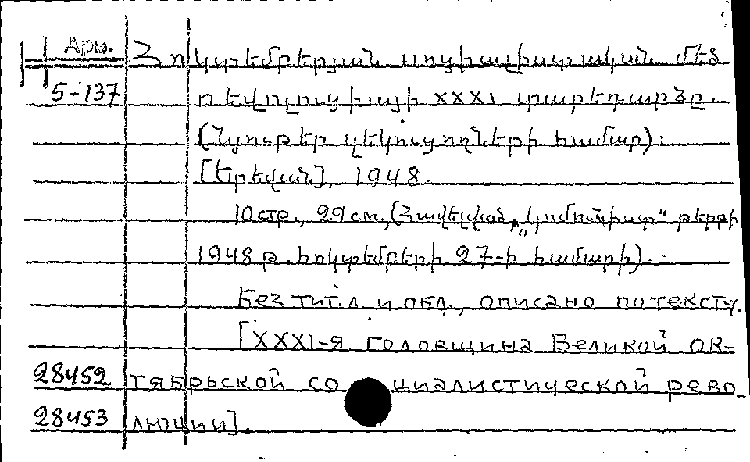 Арм. Հոկտեմբերյան սոցիալիստական մեծ
5-137 ռևոլուցիայի XXXI տարեդարձը.
(Նյութեր զեկուցողների համար).
[Երևան], 1948.
10 стр., 29 см, (Հավելված „Կոմունիստ“ թերթի
1948 թ. հոկտեմբերի 27-ի համարի).
Без тит.л. и обл., описано по тексту.
[XXXI-я годовщина Великой ок-
28452 тябрьской социалистической рево-
28453 люции].